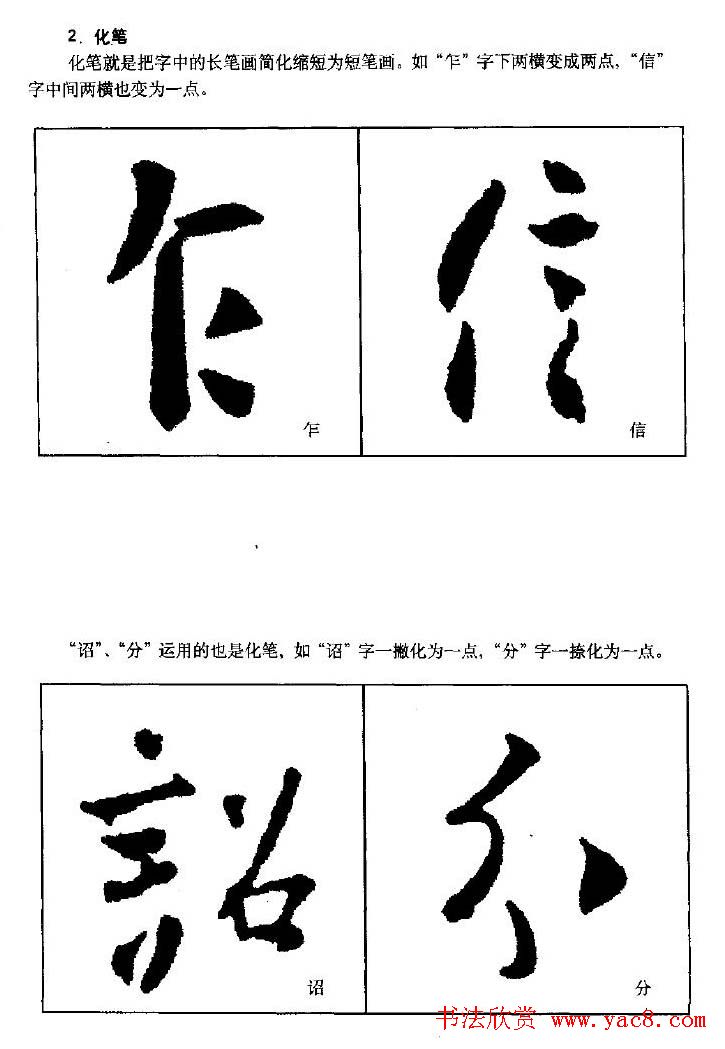 2．化笔
化笔就是把字中的长笔画简化缩短为短笔画。如“乍”字下两横变成两点，“信”
字中间两横也变为一点。
乍 信
乍
信
“诏”、“分”运用的也是化笔，如“诏”字一撇化为一点，“分”字一捺化为一点。
詔 分
诏
分
书法欣赏 www.yac8.com